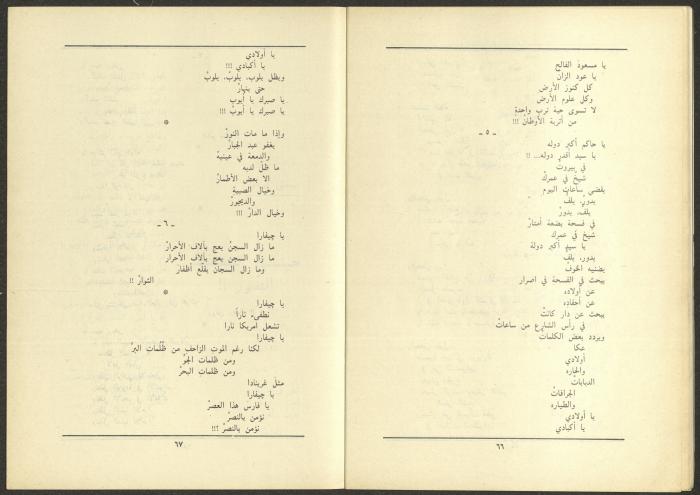 يا مسعودَ الفالح
يا عود الزان
كل كنوز الأرض
وكل علوم الأرض
لا تسوى حبة ترب واحدةٍ
من أتربة الأوطان !!!
ـ ٥ ـ
يا حاكم أكبر دوله
يا سيد أقدر دوله... !!
في بيروت
شيخٌ في عمرك
يقضي ساعات اليوم
يدور، يلفّ
يلف، يدورْ
في فسحة بضعة أمتارْ
شيخ في عمرك
يا سيد أكبر دولة
يدور، يلفّ
يضنيه الخوفْ
يبحث في الفسحة في اصرار
عن أولاده
عن أحفاده
يبحث عن دار كانتْ
في رأس الشارع من ساعاتْ
ويردد بعض الكلماتْ
عكا
أولادي
والحاره
الدباباتْ
الجرافاتْ
والطياره
يا أولادي
يا أكبادي
٦٦
يا أولادي
يا أكبادي !!!
ويظل يلوب، يلوبُ، يلوبْ
حتى ينهارْ
يا صبرك يا أيوب
يا صبرك يا أيوبْ !!!
*
وإذا ما مات النورْ
يغفو عبد الجبارْ
والدمعة في عينيهِ
ما ظلّ لديه
الا بعض الأطمارْ
وخيال الصبيةِ
والديجورْ
وخيال الدارْ !!!
ـ ٦ ـ
يا جيفارا
ما زال السجنُ يعج بآلاف الأحرارْ
ما زال السجن يعج بآلاف الأحرار
وما زال السجانُ يقلّع أظفار
الثوارْ !!
*
يا جيفارا
نطفىء ناراً
تشعل امريكا نارا
يا جيفارا
لكنا رغم الموتِ الزاحفِ من ظُلُمات البرْ
ومن ظلمات الجوْ
ومن ظلمات البحرْ
مثل غرينادا
يا جيفارا
يا فارس هذا العصرْ
نؤمن بالنصرْ
نؤمن بالنصرْ !!!
٦٧